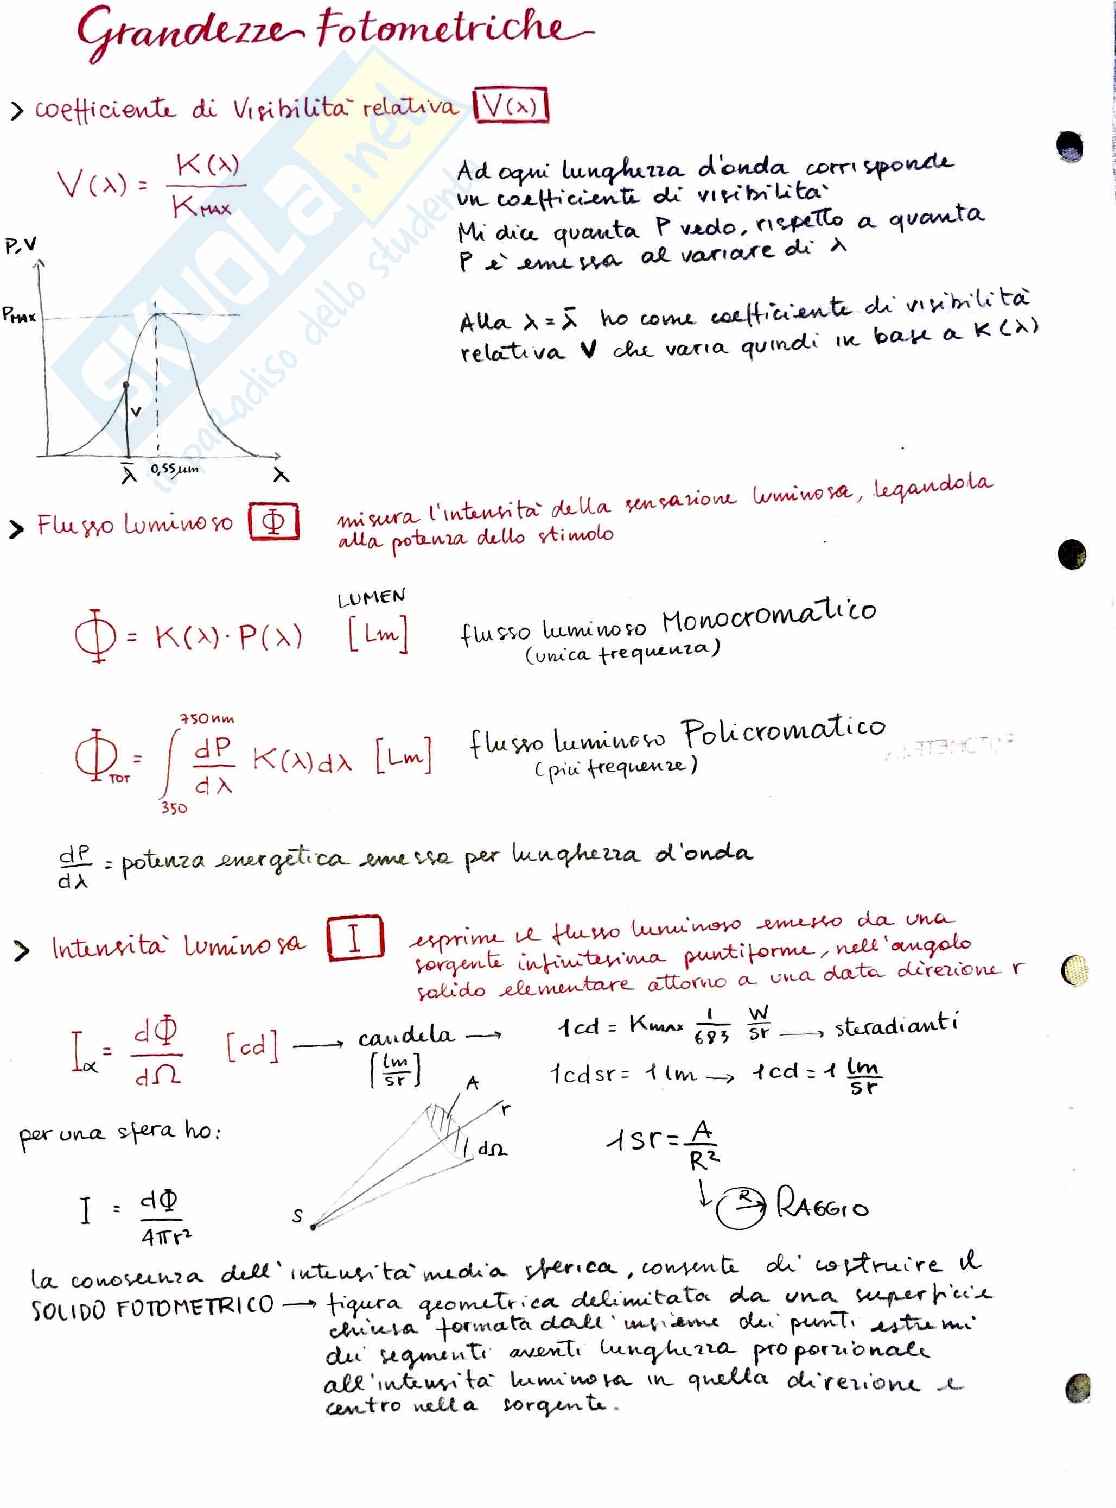 Grandezze Fotometriche
> coefficiente di Visibilità relativa V(λ)
V(λ) = K(λ) / K MAX
Ad ogni lunghezza d'onda corrisponde
un coefficiente di visibilità
Mi dice quanta P vedo, rispetto a quanta
P è emessa al variare di λ
P,V
PMAX
V
λ̄ 0,55 μm λ
Alla λ = λ̄ ho come coefficiente di visibilità
relativa V che varia quindi in base a K(λ)
SKUOLA.net
il paradiso dello studente
> Flusso luminoso Φ
misura l'intensità della sensazione luminosa, legandola
alla potenza dello stimolo
LUMEN
Φ = K(λ)·P(λ) [Lm] flusso luminoso Monocromatico
(unica frequenza)
Φ TOT = ∫ 350 750nm dP/dλ K(λ)dλ [Lm] flusso luminoso Policromatico
(più frequenze)
dP/dλ = potenza energetica emessa per lunghezza d'onda
> Intensità luminosa I
esprime il flusso luminoso emesso da una
sorgente infinitesima puntiforme, nell'angolo
solido elementare attorno a una data direzione r
Iα = dΦ/dΩ [cd] → candela → 1cd = Kmax 1/683 W/sr → steradianti
[lm/sr]
1cdsr = 1lm → 1cd = 1 lm/sr
A
r
dΩ
S
per una sfera ho:
1sr = A/R²
R RAGGIO
I = dΦ/4πr²
la conoscenza dell'intensità media sferica, consente di costruire il
SOLIDO FOTOMETRICO → figura geometrica delimitata da una superficie
chiusa formata dall'insieme dei punti estremi
dei segmenti aventi lunghezza proporzionale
all'intensità luminosa in quella direzione e
centro nella sorgente.